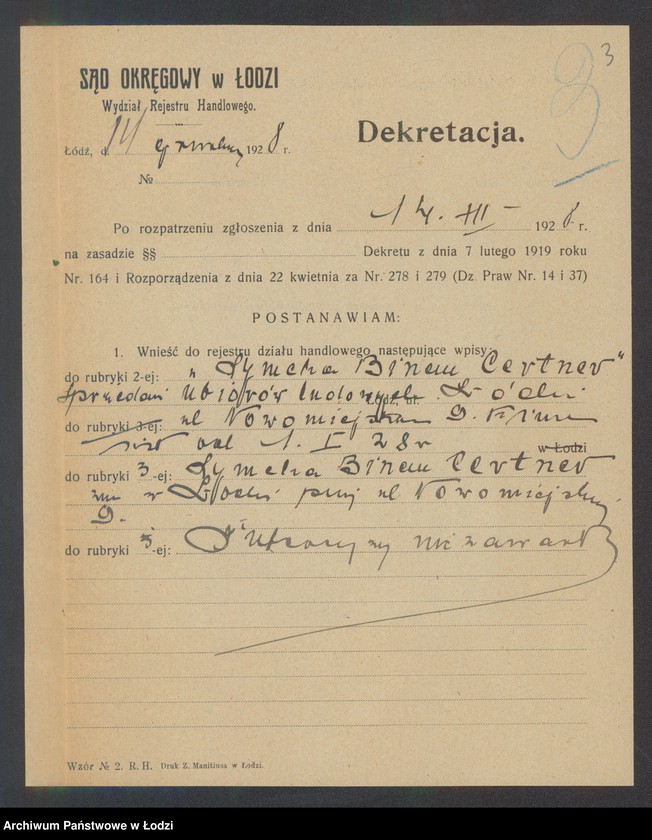 3
3
SĄD OKRĘGOWY w ŁODZI
Wydział Rejestru Handlowego.
Łódź, d. 14 grudnia 1928 r.
Dekretacja.
№
Po rozpatrzeniu zgłoszenia z dnia 14. XII 1928 r.
na zasadzie §§ Dekretu z dnia 7 lutego 1919 roku
Nr. 164 i Rozporządzenia z dnia 22 kwietnia za Nr. 278 i 279 (Dz. Praw Nr. 14 i 37)
POSTANAWIAM:
1. Wnieść do rejestru działu handlowego następujące wpisy:
do rubryki 2-ej: „Symcha Binem Certner"
Sprzedaż ubiorów Łódź, ul. Łódź
do rubryki 3-ej: ul Nowomiejska 9. Firma
od 1. I 28 r w Łodzi
do rubryki 3-ej: Symcha Binem Certner
zam w Łodzi przy ul Nowomiejskiej
9.
do rubryki 5-ej: Intercyzy nie zawarł
Wzór № 2. R. H. Druk Z. Manitiusa w Łodzi.
Archiwum Państwowe w Łodzi